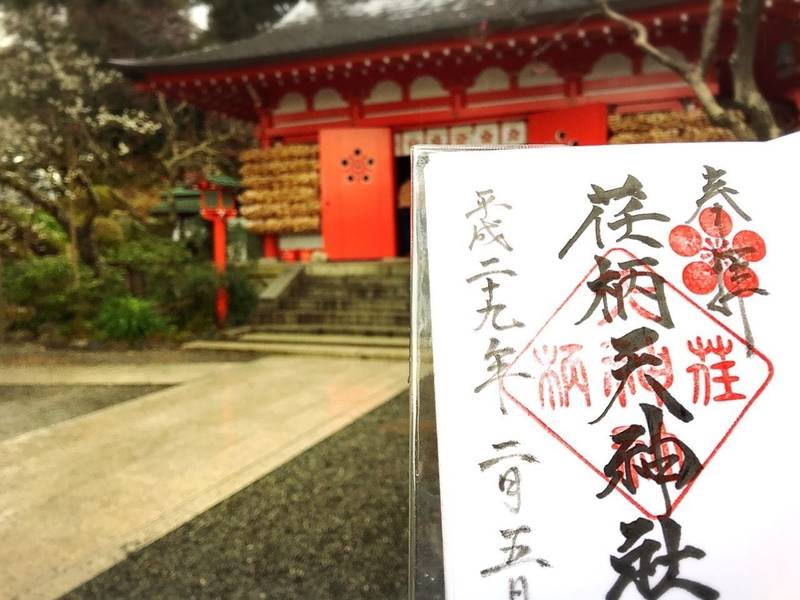 奉拝
荏柄天神社
平成二十九年二月五日